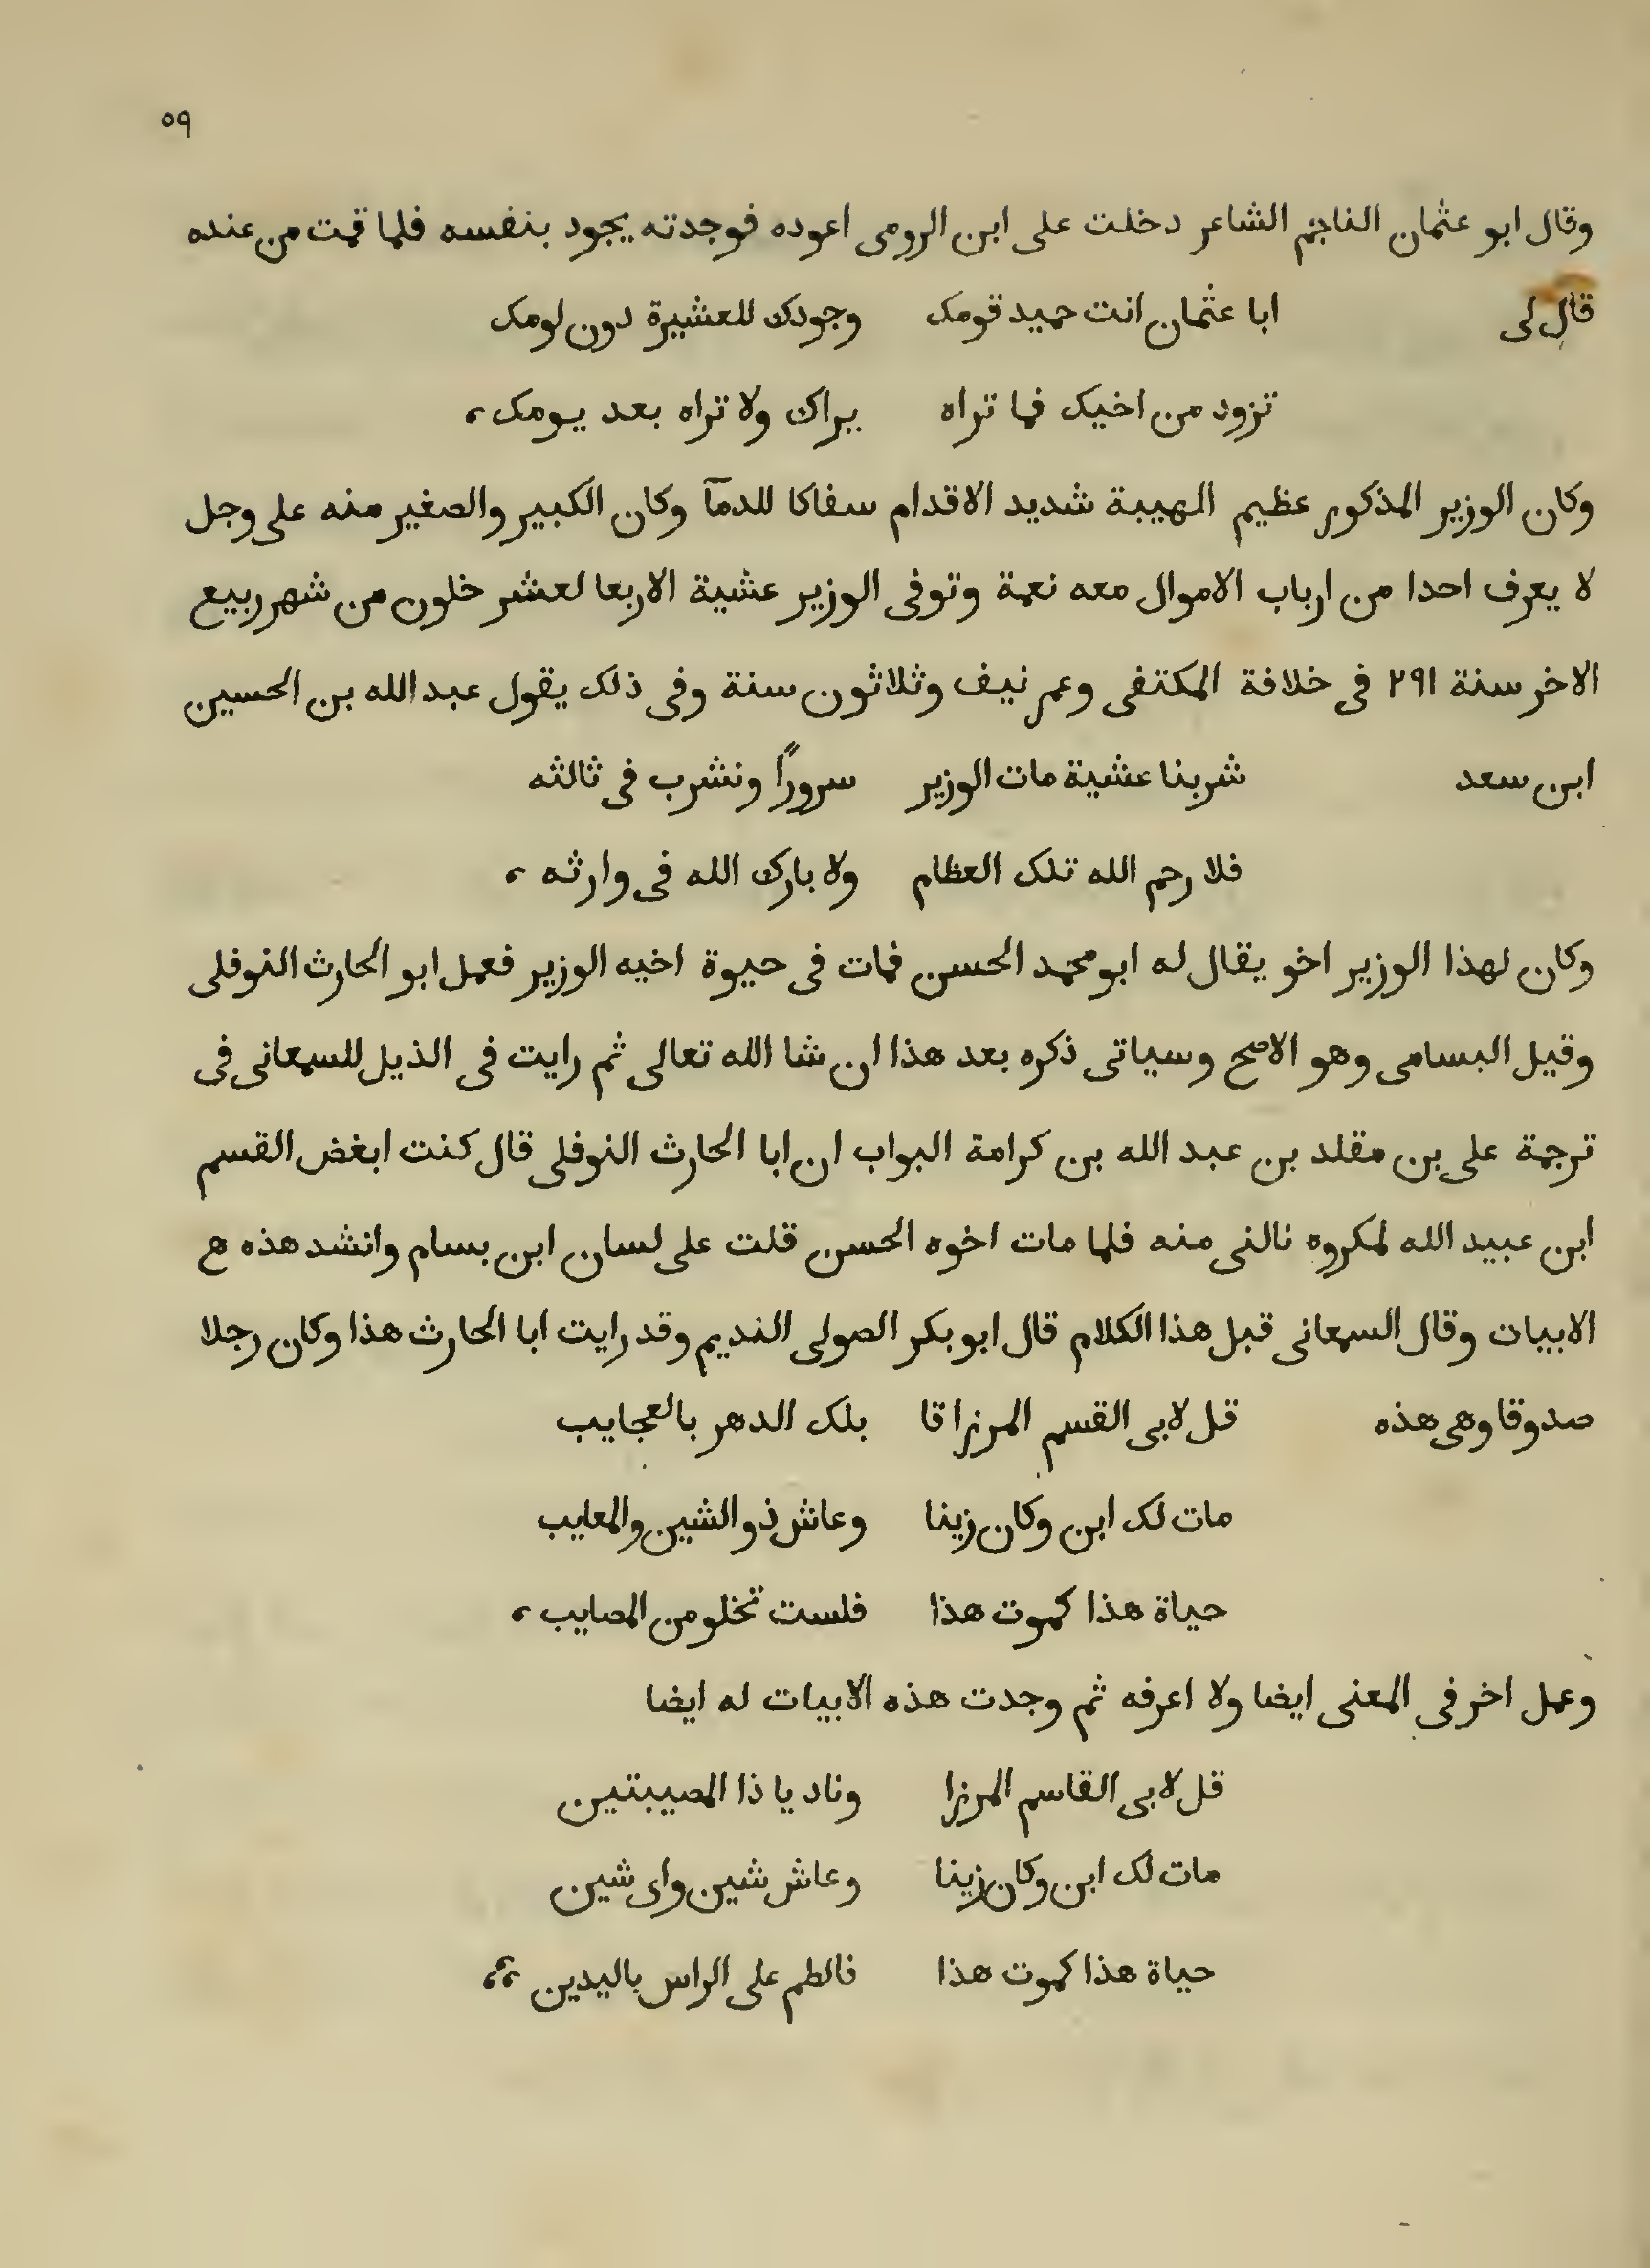 ٥٩
وقال ابو عثمان الناجم الشاعر دخلت على ابن الرومى اعوده فوجدته يجود بنفسه فلما قمت من عنده
قال لى ابا عثمان انت حميد قومك وجودك للعشيرة دون لومك
تزود من اخيك فما تراه يراك ولا تراه بعد يومك ،
وكان الوزير المذكور عظيم الهيبة شديد الاقدام سفاكا للدمآ وكان الكبير والصغير منه على وجل
لا يعرف احدا من ارباب الاموال معه نعمة وتوفى الوزير عشية الاربعا لعشر خلون من شهر ربيع
الاخر سنة ٢٩١ فى خلافة المكتفى وعمر نيف وثلاثون سنة وفى ذلك يقول عبد الله بن الحسين
ابن سعد شربنا عشية مات الوزير سرورًا ونشرب فى ثالثه
فلا رحم الله تلك العظام ولا بارك الله فى وارثه ،
وكان لهذا الوزير اخو يقال له ابو محمد الحسن فمات فى حيوة اخيه الوزير فعمل ابو الحارث النوفلى
وقيل البسامى وهو الاصح وسياتى ذكره بعد هذا ان شا الله تعالى ثم رايت فى الذيل للسمعانى فى
ترجمة على بن مقلد بن عبد الله بن كرامة البواب ان ابا الحارث النوفلى قال كنت ابغض القسم
ابن عبيد الله لمكروه نالنى منه فلما مات اخوه الحسن قلت على لسان ابن بسام وانشد هذه
الابيات وقال السمعانى قبل هذا الكلام قال ابو بكر الصولى النديم وقد رايت ابا الحارث هذا وكان رجلا
صدوقا وهى هذه قل لابى القسم المرزا قا بلك الدهر بالعجايب
مات لك ابن وكان زينا وعاش ذو الشين والمعايب
حياة هذا كموت هذا فلست تخلو من المصايب ،
وعمل اخر فى المعنى ايضا ولا اعرفه ثم وجدت هذه الابيات له ايضا
قل لابى القاسم المرزا وناد يا ذا المصيبتين
مات لك ابن وكان زينا وعاش شين واى شين
حياة هذا كموت هذا فالطم على الراس باليدين ،،